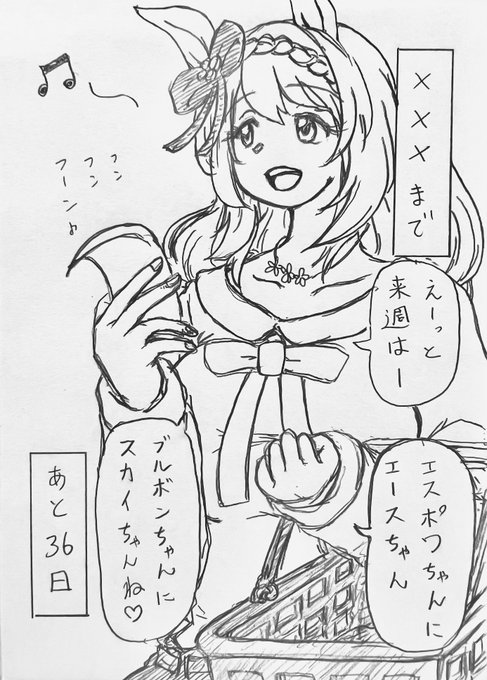 ×××まで
えーっと
来週はー
エスポワちゃんに
エースちゃん
フン
フン
フーン♪
ブルボンちゃんに
スカイちゃんね♡
あと36日